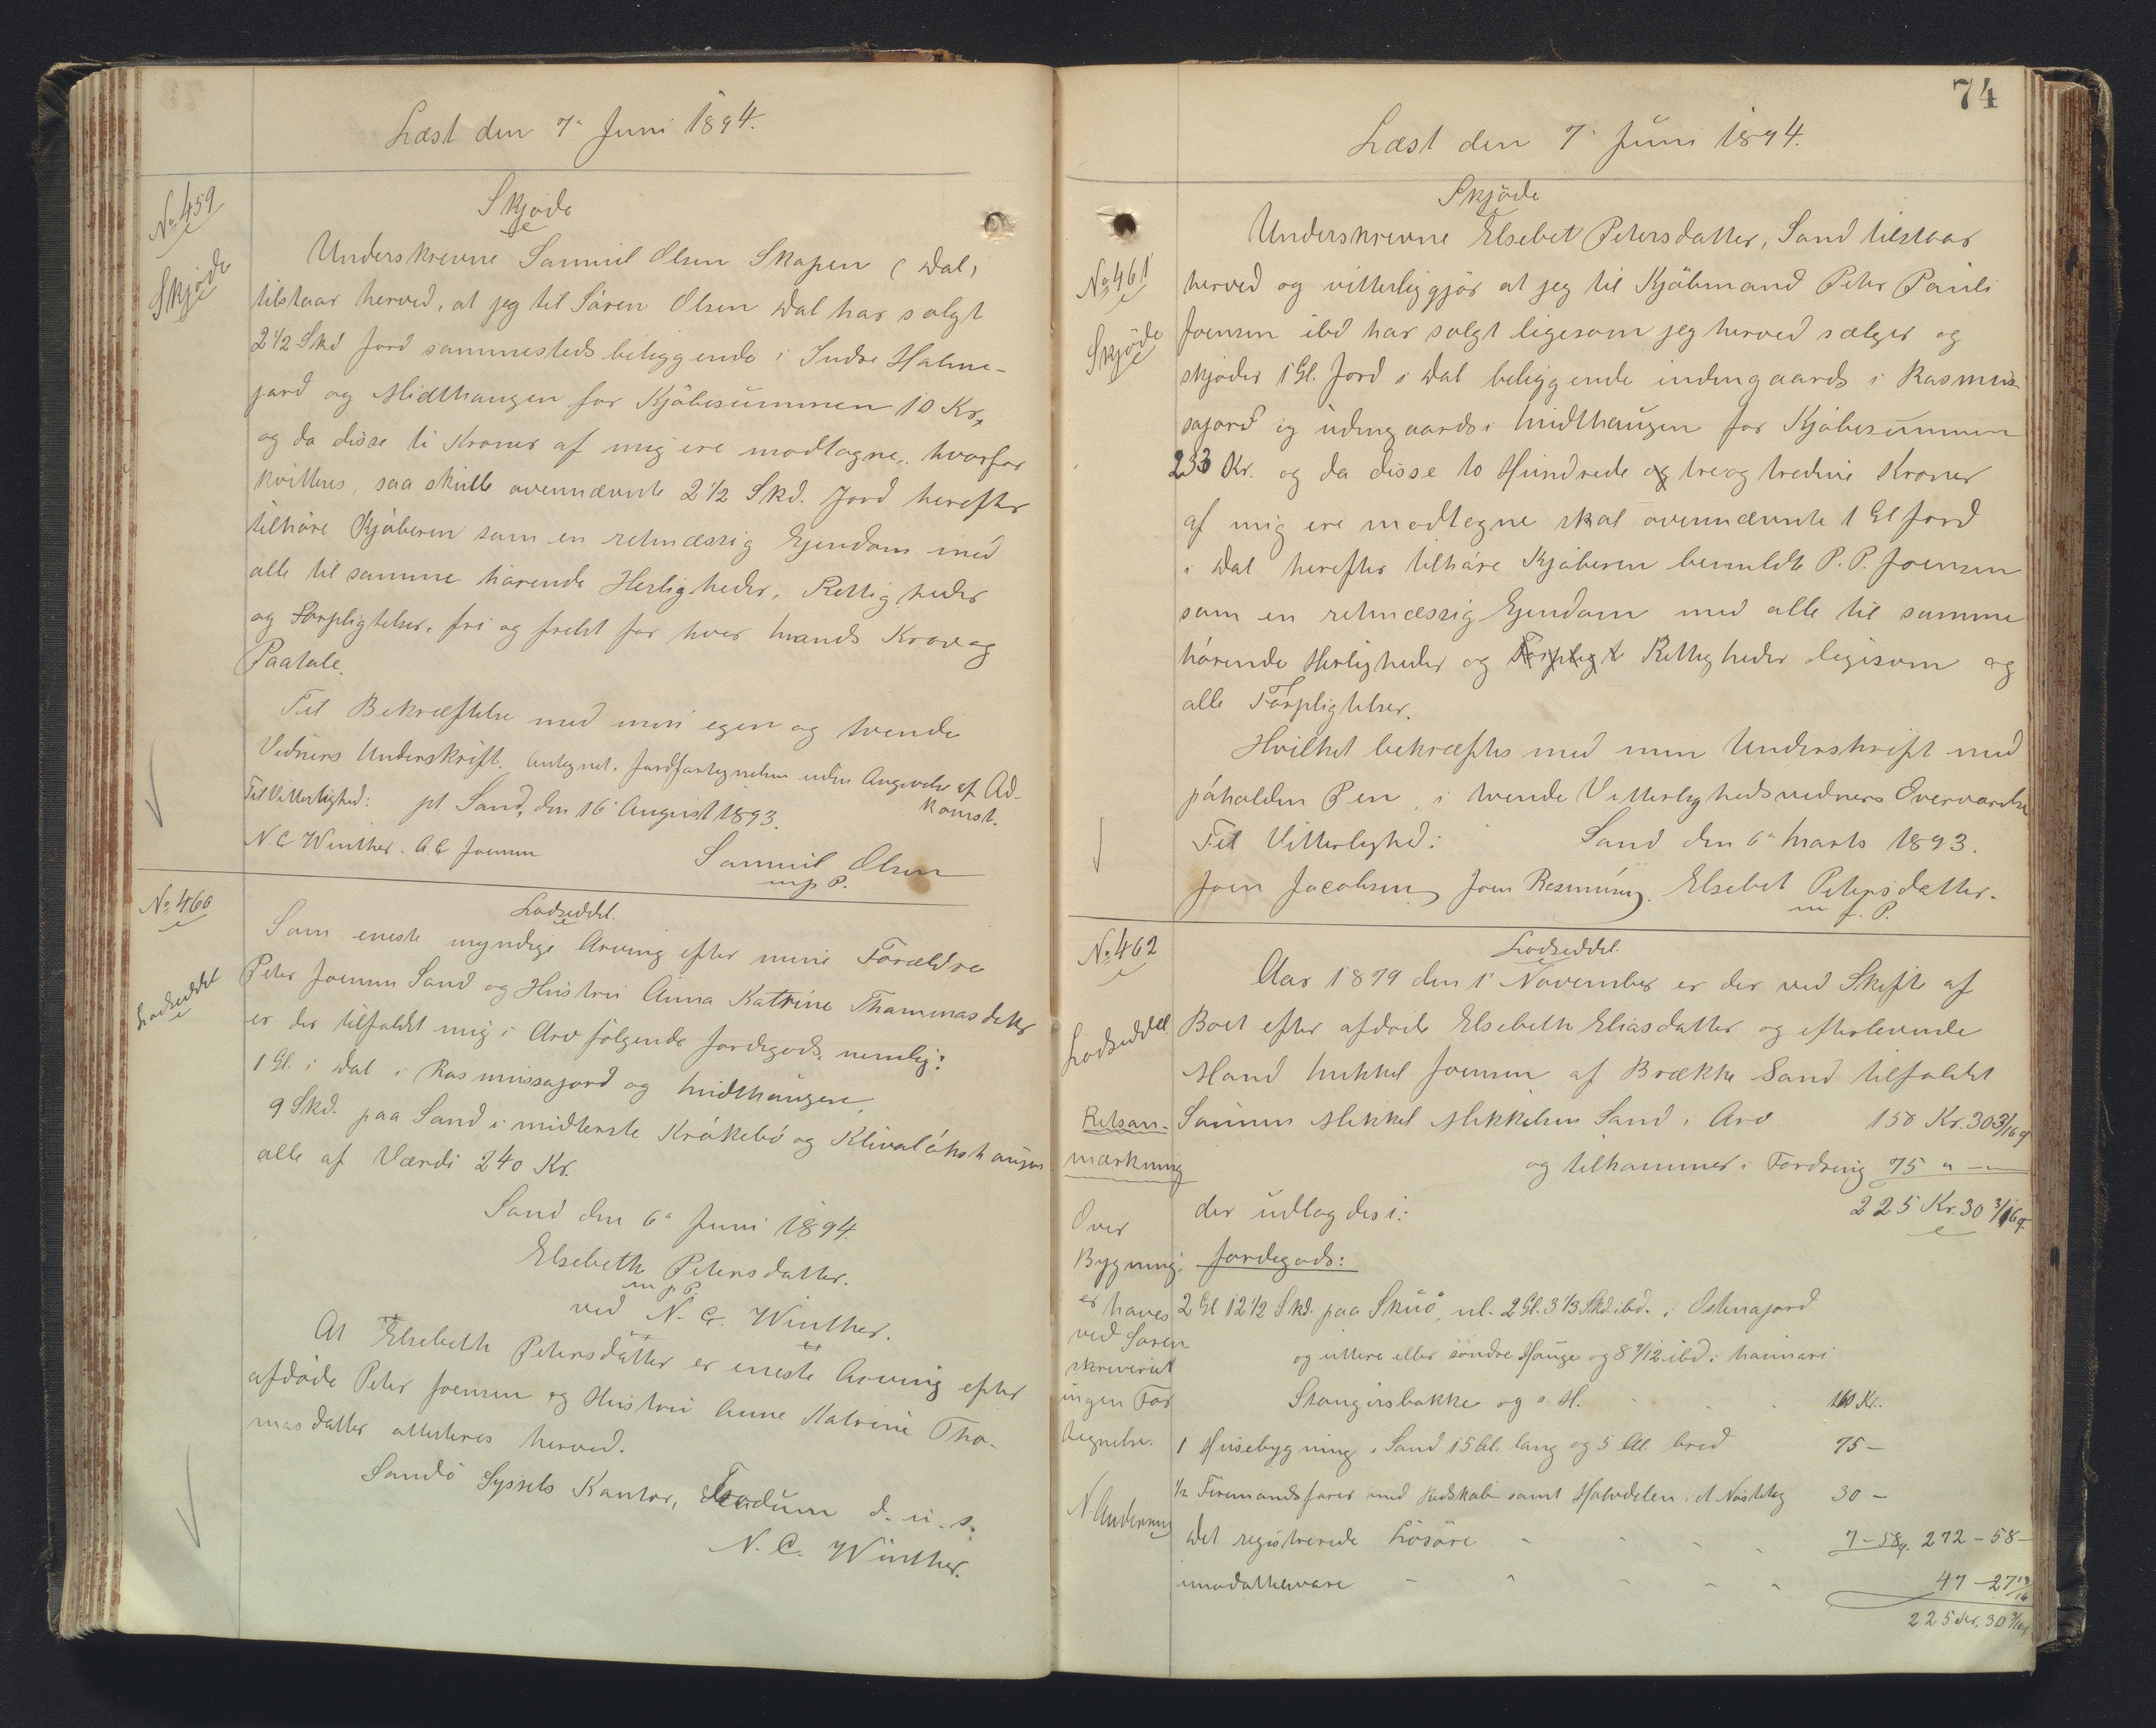 Læst den 7' Juni 1894.
No 459
Skjøde
Skjøde
Underskrevne Samuil Olsen Skapen (Dal,
tilstaar herved, at jeg til Sören Olsen Dal har solgt
2 1/2 Skd Jord sammesteds beliggende i Indre Halme-
jard og Midthaugen for Kjöbesummen 10 Kr,
og da disse ti Kroner af mig ere modtagne, hvorfor
kvitteres, saa skulle ovennævnte 2 1/2 Skd. Jord herefter
tilhöre Kjöberen som en retmæssig Ejendom med
alle til samme hörende Herligheder, Rettigheder
og Forpligtelser, fri og frelst for hver Mands Krav og
Paatale.
Til Bekræftelse med min egen og tvende
Vidners Underskrift. Antegnet. Jordfortegnelsen uden Angivelse af Ad-
komst.
Til Vitterlighed: pt Sand, den 16' August 1893.
N C Winther. A C Joensen
Samuil Olsen
m p P.
No 460
Lodseddel
Lodseddel.
Som eneste myndige Arving efter mine Forældre
Peter Joensen Sand og Hustru Anna Katrine Thommasdatter
er der tilfaldet mig i Arv fölgende Jordegods, nemlig:
1 Gl. i Dal i Rasmussajord og Midthaugen,
9 Skd. paa Sand i midterste Krókebö og Klivalókshaugen
alle af Værdi 240 Kr.
Sand den 6' Juni 1894
Elsebeth Petersdatter.
m p P.
ved N. C. Winther.
At Elsebeth Petersdatter er eneste Arving efter
afdöde Peter Joensen og Hustru Anne Katrine Tho-
masdatter attesteres herved.
Sandö Syssels Kontor, Todum d. u. s.
N. C. Winther.
74
Læst den 7' Juni 1894.
Skjöde
No 461
Skjöde
Underskrevne Elsebet Petersdatter, Sand tilstaar
herved og vitterliggjör at jeg til Kjöbmand Peter Pauli
Joensen ibd har solgt ligesom jeg herved sælger og
skjöder 1 Gl. Jord i Dal beliggende indengaards i Rasmus-
sajord og udengaards i Midthaugen for Kjöbesummen
233 Kr. og da disse to Hundrede og tre og tredive Kroner
af mig ere modtagne skal ovennævnte 1 Gl Jord
i Dal herefter tilhöre Kjöberen bemeldte P. P. Joensen
som en retmæssig Ejendom med alle til samme
hörende Herligheder og Forpligt Rettigheder ligesom og
alle Forpligtelser.
Hvilket bekræftes med min Underskrift med
påholden Pen, i tvende Vitterlighedsvidners Overværelse
Til Vitterlighed: Sand den 6' Marts 1893.
Joen Jacobsen Joen Rasmussen. Elsebet Petersdatter.
m f. P.
No 462
Lodseddel
Lodseddel.
Aar 1879 den 1' November er der ved Skifte af
Boet efter afdöde Elsebeth Eliasdatter og efterlevende
Mand Mikkel Joensen af Brække Sand tilfaldet
Sönnen Mikkel Mikkelsen Sand i Arv 150 Kr. 30 3/16 q
og tilkommer i Fordring 75 " —
225 Kr. 30 3/16 q.
der udlagdes i:
Jordegods:
2 Gl 12 1/2 Skd. paa Skuö, nl. 2 Gl. 3 1/3 Skd. ibd. i Ostnajord
og uttere eller söndre Hauge og 8 9/12 ibd. i
Stangirsbakke og s. H. 160 Kr.
1 Husebygning i Sand 15 Al. lang og 5 Al. bred 75 –
1/2 Firemandsfarer med Redskab samt Halvdelen i et Nöstetag 30 –
Det registrerede Lösöre 7 – 58 q. 272 – 58 –
imodatsvare 47 – 27 13/16
225 Kr. 30 3/16 q.
Retsan-
mærkning
Over
Bygning.
er haves
ved Soren
skriveriet
ingen For
tegnelse.
N. Andersen